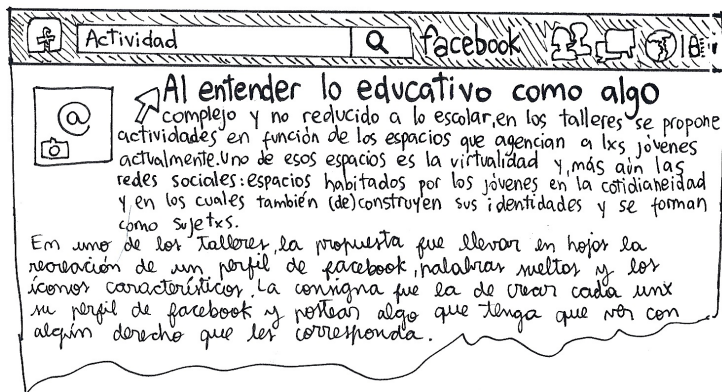 Actividad
facebook
@
Al entender lo educativo como algo
complejo y no reducido a lo escolar, en los talleres se propone
actividades en función de los espacios que agencian a lxs jóvenes
actualmente. Uno de esos espacios es la virtualidad y, más aún las
redes sociales: espacios habitados por los jóvenes en la cotidianeidad
y en los cuales también (de)construyen sus identidades y se forman
como sujetxs.
En uno de los talleres, la propuesta fue llevar en hojas la
recreación de un perfil de facebook, palabras sueltas y los
íconos característicos. La consigna fue la de crear cada unx
su perfil de facebook y postear algo que tenga que ver con
algún derecho que les corresponda.